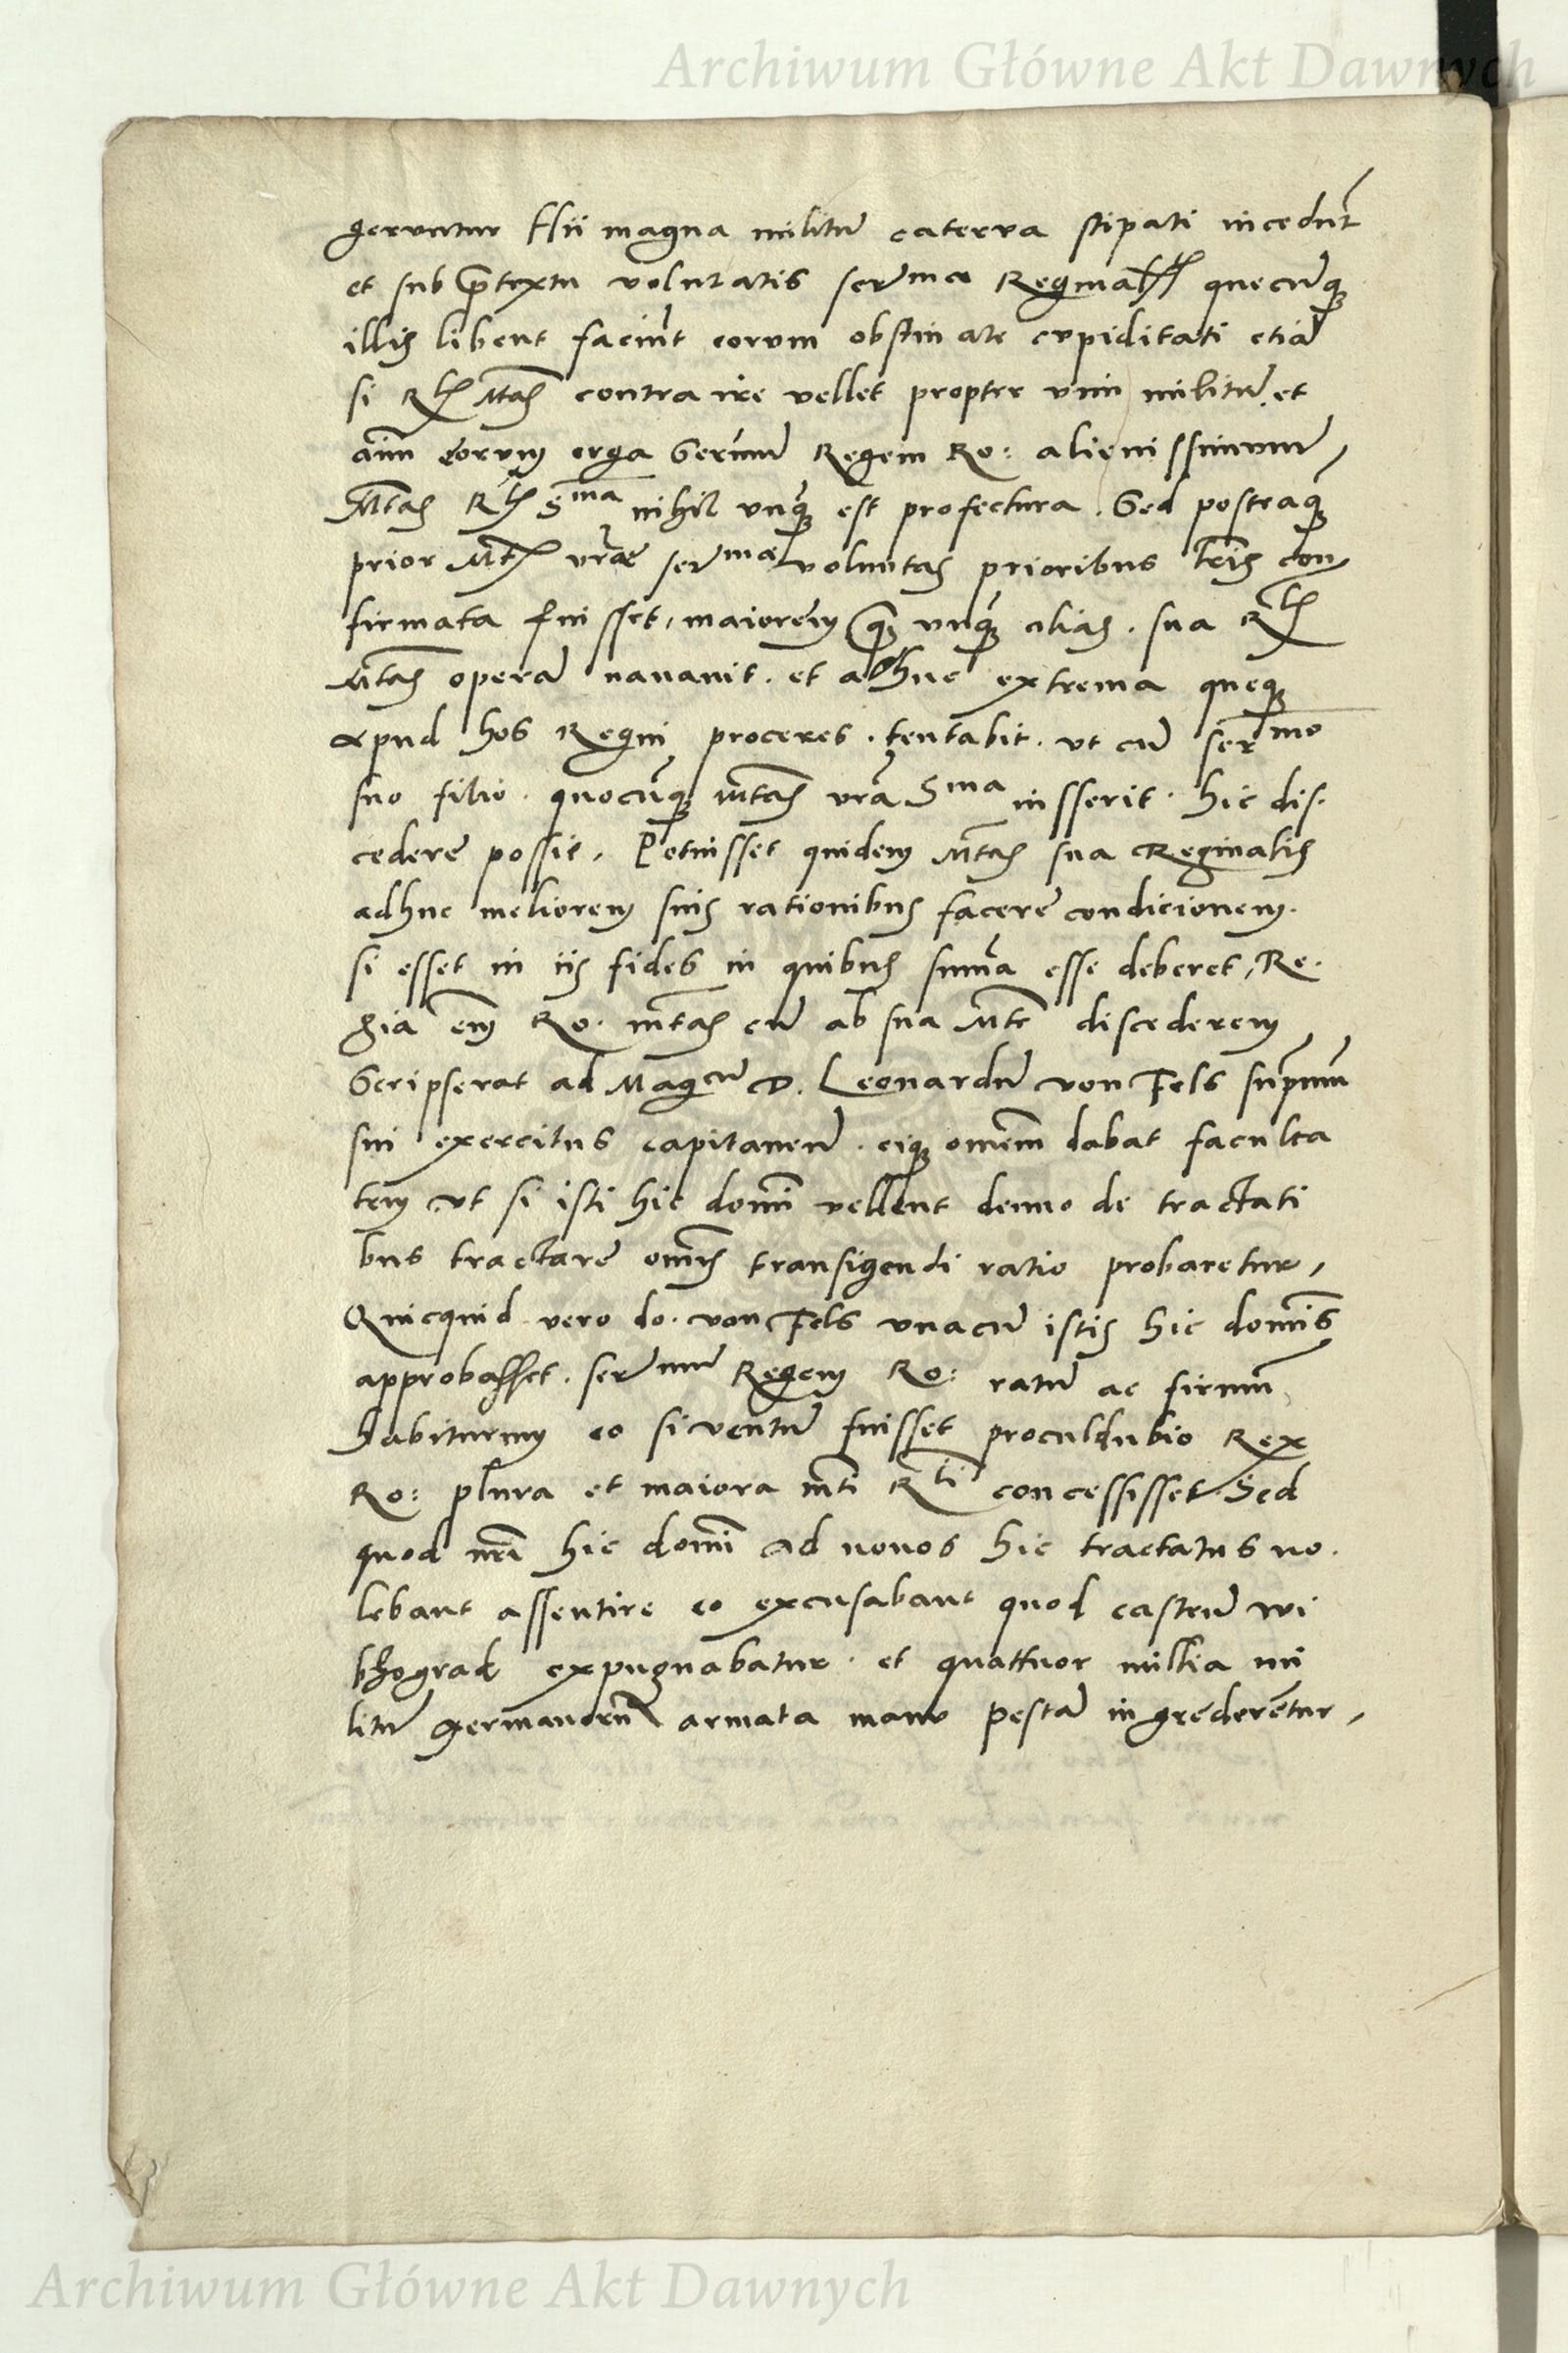 Archiwum Główne Akt Dawnych
geruntur Hii magna militū caterva stipati incedūt
et sub p̄textu voluntatis serᵐᵃᵉ Regina quecūq
illis libent faciūt eorum obstinate cupiditati etiā
si Rˡⁱˢ Mtas contra ire vellet propter vim militū et
aīm eorum erga Serᵐūm Regem Ro: alienissimum,
Mtas Rˡⁱˢ Sᵐᵃ nihil unq̄ est profectura. Sed posteaq̄
prior Mtis vrāe serᵐᵃᵉ voluntas prioribus lrīs con
firmata fuisset, maiorem q̄ unq̄ alias. sua Rˡⁱˢ
Mtas operā navavit. et adhuc extrema queq
apud hos Regni proceres. tentabit. ut cū serᵐᵒ
suo filio. quocūq mtas vrā Sᵐᵃ iusserit. hic dis.
cedere possit. Potuisset quidem Mtas sua Reginalis
adhuc meliorem suis rationibus facere condicionem.
si esset in iis fides in quibus summa esse deberet, Re.
gia em̄ Ro. mtas cū ab sua Mte discederem
Scripserat ad Magᶜū D. Leonardū von Fels sup̄mū
sui exercitus capitaneū. eiq omēm dabat faculta
tem ut si isti hic domī vellent denuo de tractati
bus tractare omīs transigendi ratio probaretur,
Quicquid vero do. von Fels unacū istis hic domīs
approbasset. serᵐūm Regem Ro: ratū ac firmū
habiturum eo si ventū fuisset proculdubio Rex
Ro: plura et maiora mti Rˡⁱ concessisset. Sed
quod nrī hic domī ad novos hic tractatus no.
lebant assentire eo excusabant quod castrū wi
shograd expugnabatur. et quattuor millia mi
litū germanorū armata manu pestā ingrederētur,
Archiwum Główne Akt Dawnych